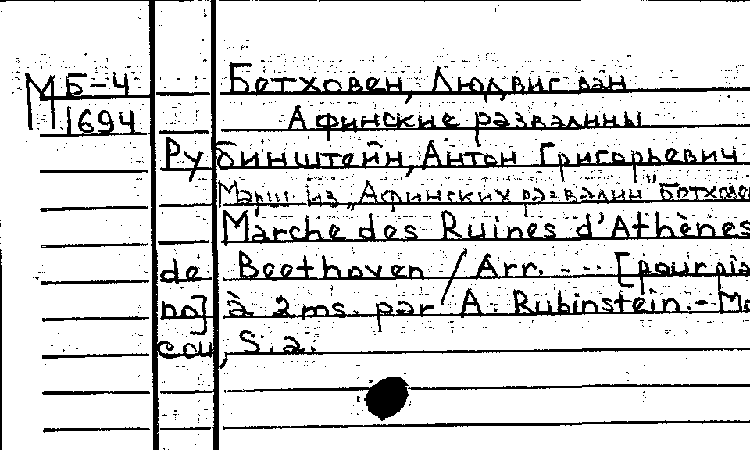 М Б-4 Бетховен, Людвиг ван
1694 Афинские развалины
Рубинштейн, Антон Григорьевич
Марш из „Афинских развалин" Бетхове
Marche des Ruines d'Athènes
de Beethoven / Arr. ... [pour pia
no] à 2 ms. par A. Rubinstein. - Mo
cou, S. a.